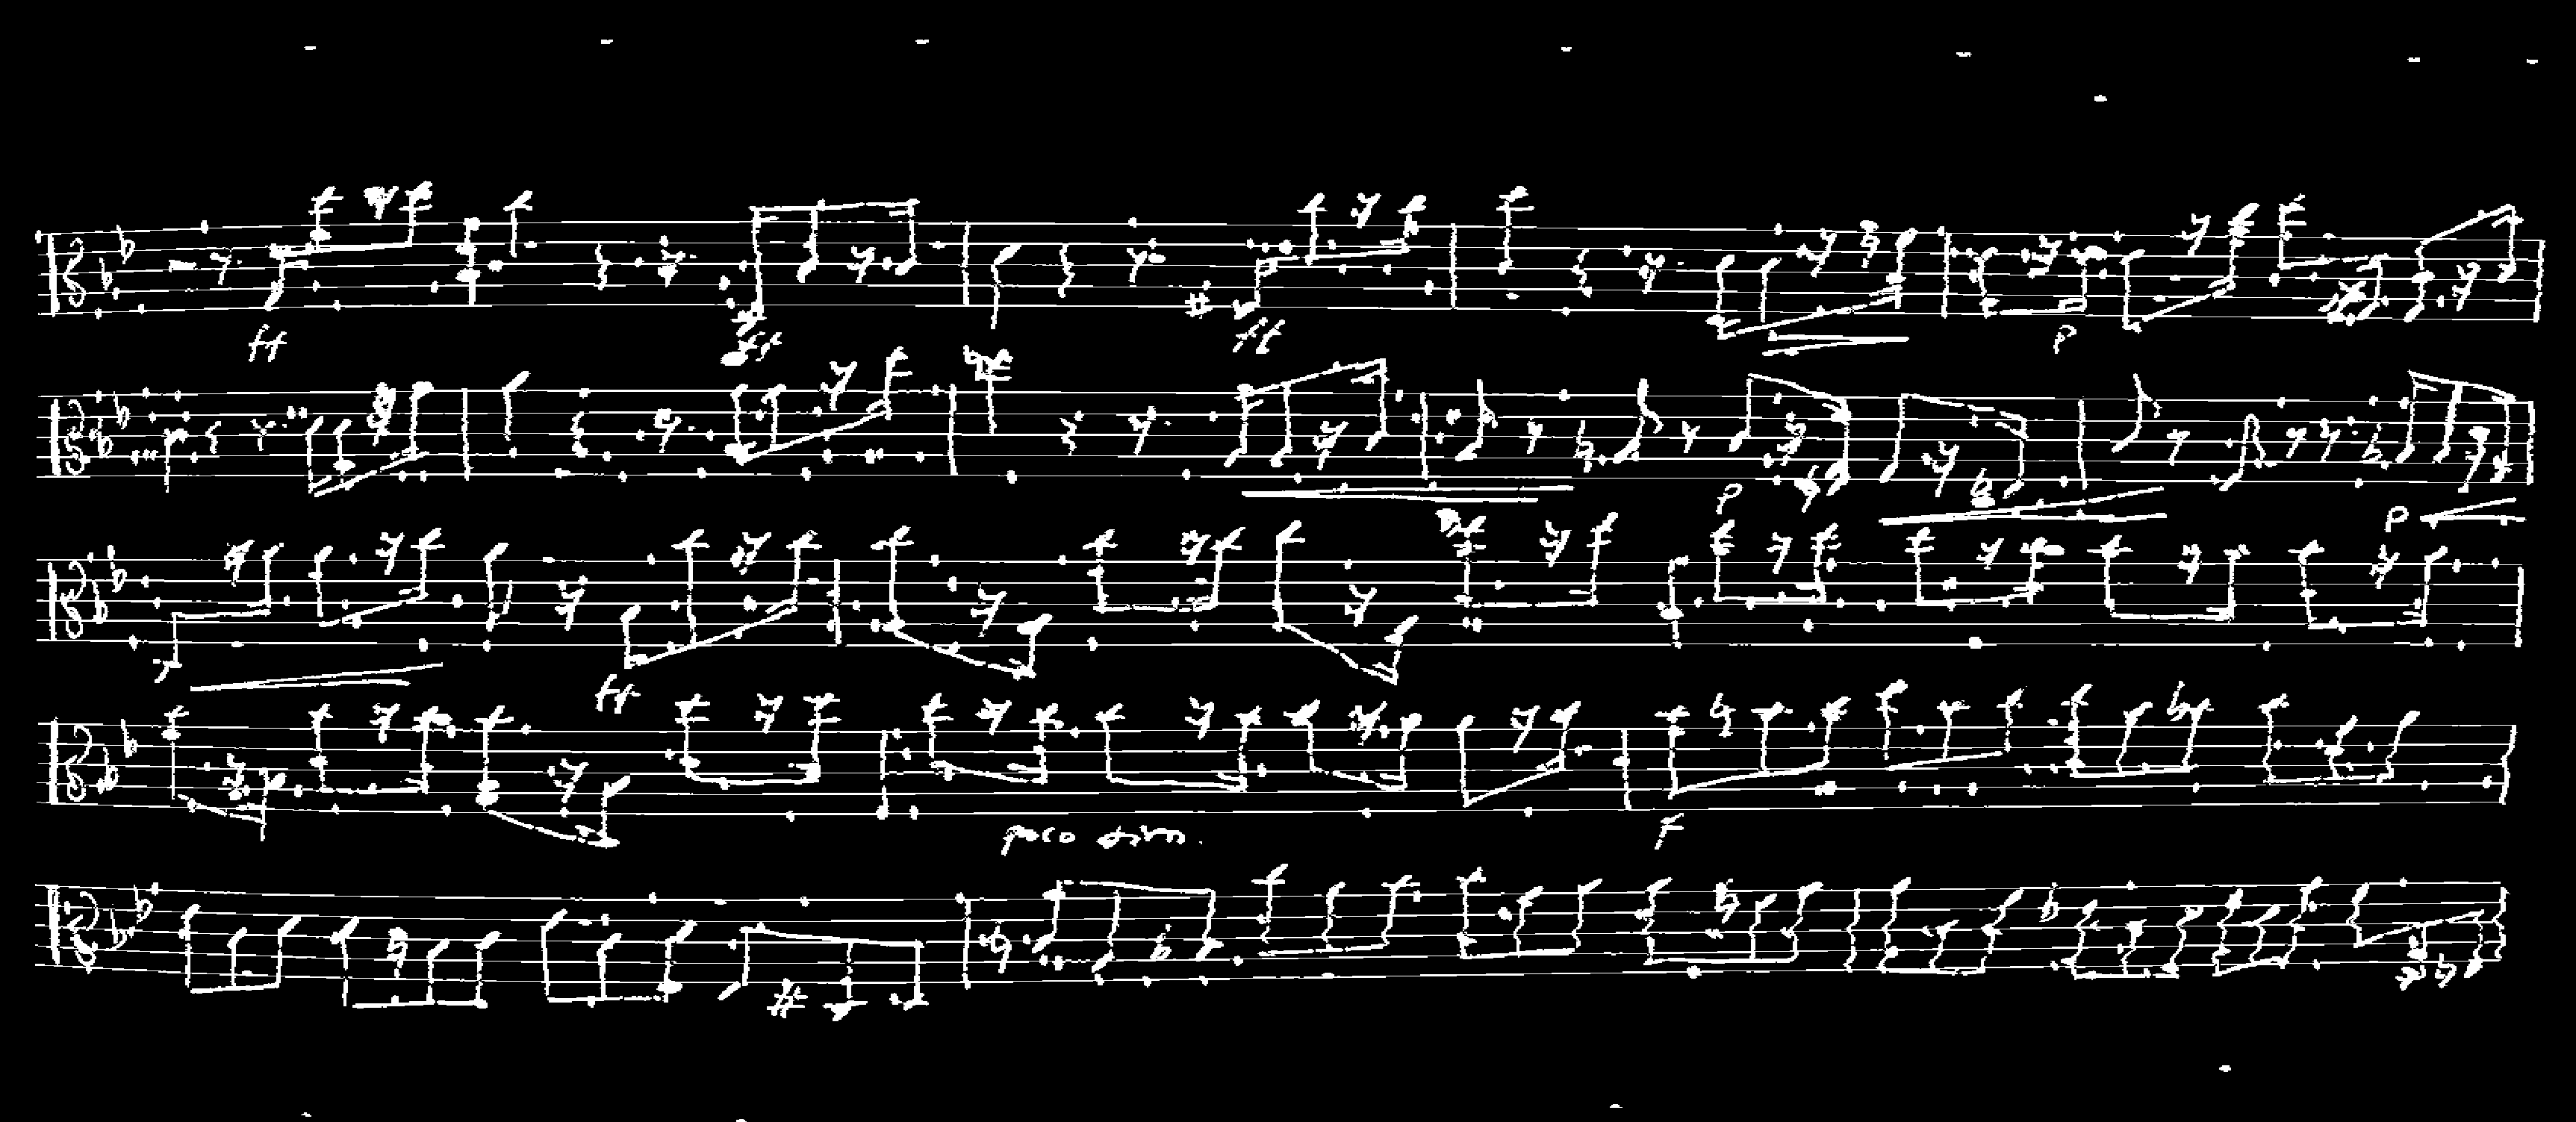 ff ff ff p
p p
ff
poco dim. F